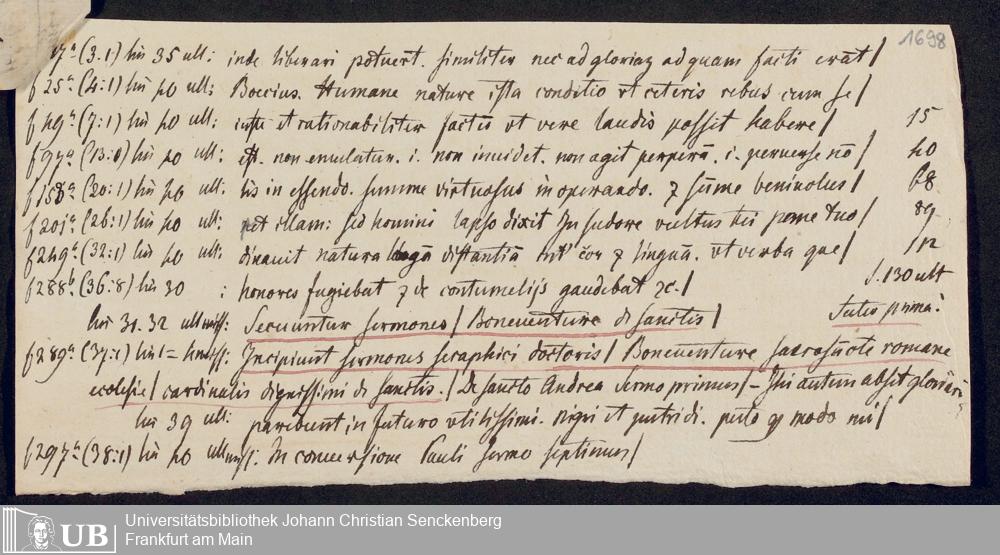 1698
17a (3:1) lin 35 ult: inde liberari potuert. similiter nec ad gloriaz ad quam facti erāt/
f 25a (4:1) lin 40 ult: Boecius. Humane nature ista conditio vt ceteris rebus cum se/
f 49a (7:1) lin 40 ult: iuste et rationabiliter factū vt vere laudis possit habere/ 15
f 97a (13:8) lin 40 ult: non emulatur. i. non inuidet. non agit perperā. i. peruerse nō/ 40
f 158a (20:1) lin 40 ult: lis in essendo. summe virtuosus in operando. ⁊ sūme beniuolus/ 68
f 201a (26:1) lin 40 ult: illam: sed homini lapso dixit In sudore vultus tui pane tuo/ 89
f 249a (32:1) lin 40 ult: dinauit natura distantiā int' cor ⁊ linguā. vt verba que/ 112
f 288b (36:8) lin 30 : honores fugiebat ⁊ de contumelijs gaudebat ⁊c./ f. 130 ult
lin 31. 32 ult miss: Secuntur sermones/ Boneuenture di sanctis/ prima:
f 289a (37:1) lin 1= miss: Incipiunt sermones seraphici doctoris/ Boneuenture sacrosancte romane
ecclesie/ cardinalis dignissimi di sanctis./ De sancto Andrea Sermo primus/ – autem absit gloriari
lin 39 ult: in futuro vtilissimi. nigri et putridi. puto modo mi/
f 297a (38:1) lin 40 ult miss: In conuersione Pauli Sermo septimus/
UB
Universitätsbibliothek Johann Christian Senckenberg
Frankfurt am Main